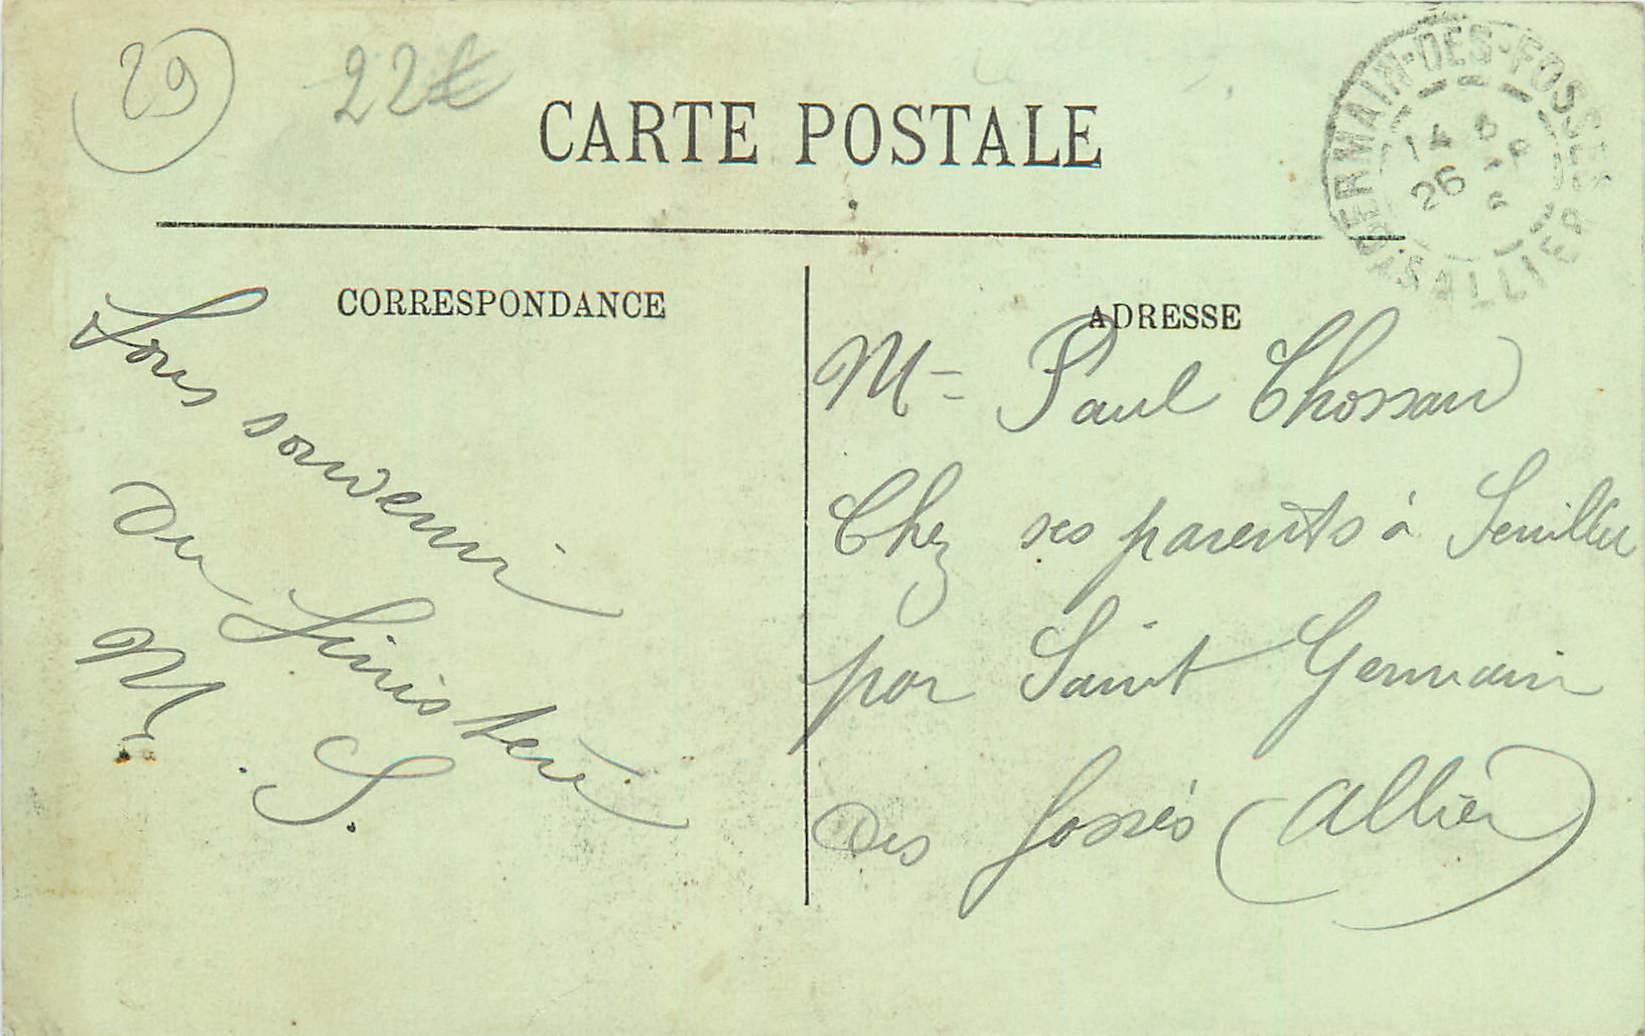 29
22€
CARTE POSTALE
GERMAIN-DES-FOSSÉS
14
26
ALLIER
CORRESPONDANCE
ADRESSE
souvenir
Du Finistère
M. S.
Mr Paul Chossan
Chez ses parents à Seuillet
par Saint Germain
Des fossés (Allier)